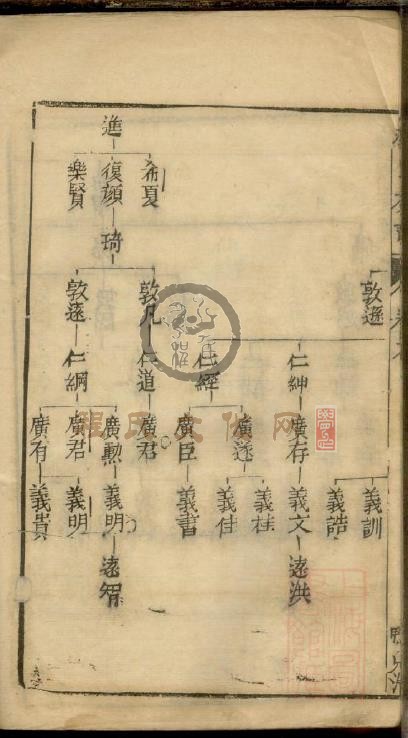 進
希夏 復頏 樂賢
琦
敦遜 敦凡 敦遠
仁紳 仁經 仁道 仁綱
廣存 廣遂 廣臣 廣君 廣勲 廣君 廣有
義訓 義誥 義文 義桂 義佳 義書 義明 義明 義貴
遠洪 遠智
程氏文候网